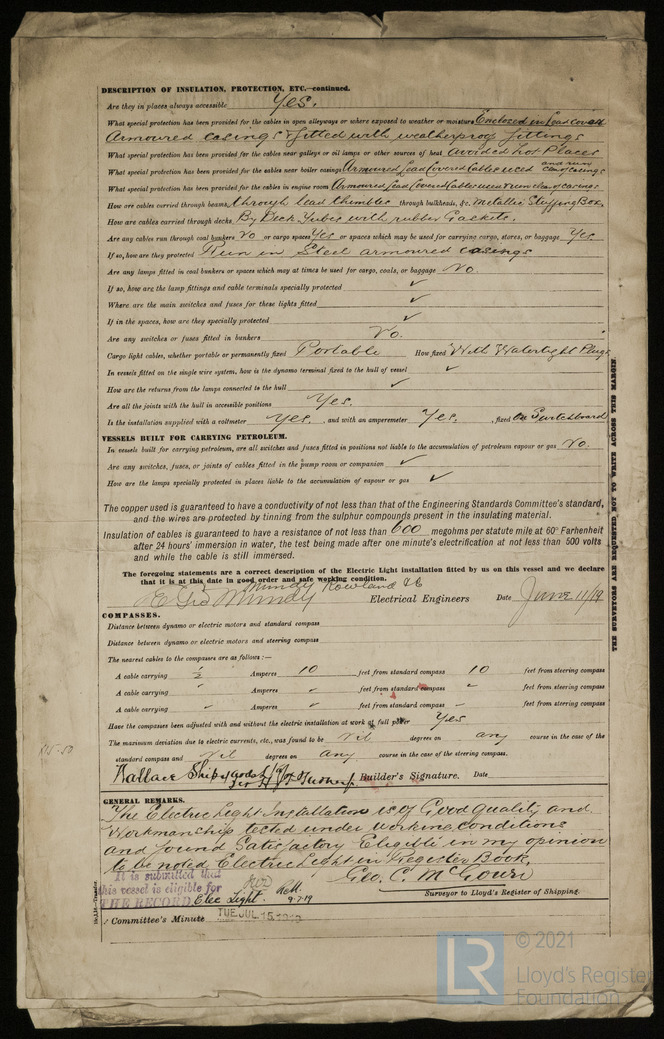 DESCRIPTION OF INSULATION, PROTECTION, ETC.—continued.
Are they in places always accessible Yes.
What special protection has been provided for the cables in open alleyways or where exposed to weather or moisture Enclosed in Lead Covered
Armoured casings & fitted with weatherproof fittings
What special protection has been provided for the cables near galleys or oil lamps or other sources of heat avoided hot Places
What special protection has been provided for the cables near boiler casings Armoured Lead Covered Cables used and run clear of casings
What special protection has been provided for the cables in engine room Armoured Lead Covered Cables used & run clear of casings
How are cables carried through beams through lead thimbles through bulkheads, &c. Metallic Stuffing Box.
How are cables carried through decks By Deck Tubes with rubber Gaskets.
Are any cables run through coal bunkers No or cargo spaces Yes or spaces which may be used for carrying cargo, stores, or baggage Yes
If so, how are they protected Run in Steel armoured casings
Are any lamps fitted in coal bunkers or spaces which may at times be used for cargo, coals, or baggage No.
If so, how are the lamp fittings and cable terminals specially protected ✓
Where are the main switches and fuses for these lights fitted ✓
If in the spaces, how are they specially protected ✓
Are any switches or fuses fitted in bunkers No.
Cargo light cables, whether portable or permanently fixed Portable How fixed With Watertight Plugs
In vessels fitted on the single wire system, how is the dynamo terminal fixed to the hull of vessel ✓
How are the returns from the lamps connected to the hull ✓
Are all the joints with the hull in accessible positions Yes.
Is the installation supplied with a voltmeter Yes. , and with an amperemeter Yes. , fixed On Switchboard
VESSELS BUILT FOR CARRYING PETROLEUM.
In vessels built for carrying petroleum, are all switches and fuses fitted in positions not liable to the accumulation of petroleum vapour or gas No.
Are any switches, fuses, or joints of cables fitted in the pump room or companion ✓
How are the lamps specially protected in places liable to the accumulation of vapour or gas ✓
The copper used is guaranteed to have a conductivity of not less than that of the Engineering Standards Committee's standard,
and the wires are protected by tinning from the sulphur compounds present in the insulating material.
Insulation of cables is guaranteed to have a resistance of not less than 600 megohms per statute mile at 60° Farhenheit
after 24 hours' immersion in water, the test being made after one minute's electrification at not less than 500 volts
and while the cable is still immersed.
The foregoing statements are a correct description of the Electric Light installation fitted by us on this vessel and we declare
that it is at this date in good order and safe working condition.
Mundy Rowland & Co
E Geo Mundy Electrical Engineers Date June 11/19
COMPASSES.
Distance between dynamo or electric motors and standard compass
Distance between dynamo or electric motors and steering compass
The nearest cables to the compasses are as follows :—
A cable carrying ½ Amperes 10 feet from standard compass 10 feet from steering compass
A cable carrying " Amperes " feet from standard compass " feet from steering compass
A cable carrying " Amperes " feet from standard compass " feet from steering compass
Have the compasses been adjusted with and without the electric installation at work at full power Yes
The maximum deviation due to electric currents, etc., was found to be Nil degrees on any course in the case of the
standard compass and Nil degrees on any course in the case of the steering compass.
Wallace Shipyards Ltd Builder's Signature. Date
GENERAL REMARKS.
The Electric Light Installation is of Good quality and
Workmanship tested under working conditions
and found Satisfactory Eligible in my opinion
to be noted Electric Light in Register Book.
Geo. C. McGouri
Surveyor to Lloyd's Register of Shipping.
It is submitted that
this vessel is eligible for
THE RECORD Elec Light. 9-7-19
Committee's Minute TUE JUL 15 1919
THE SURVEYORS ARE REQUESTED NOT TO WRITE ACROSS THIS MARGIN.
LR
© 2021
Lloyd's Register
Foundation